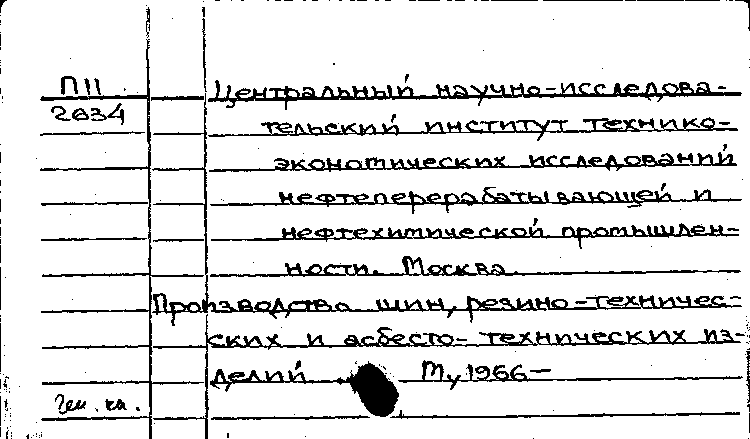 ПII
2034
Центральный научно-исследова-
тельский институт технико-
экономических исследований
нефтеперерабатывающей и
нефтехимической промышлен-
ности. Москва.
Производства шин, резино-техничес-
ских и асбесто-технических из-
делий М., 1966-